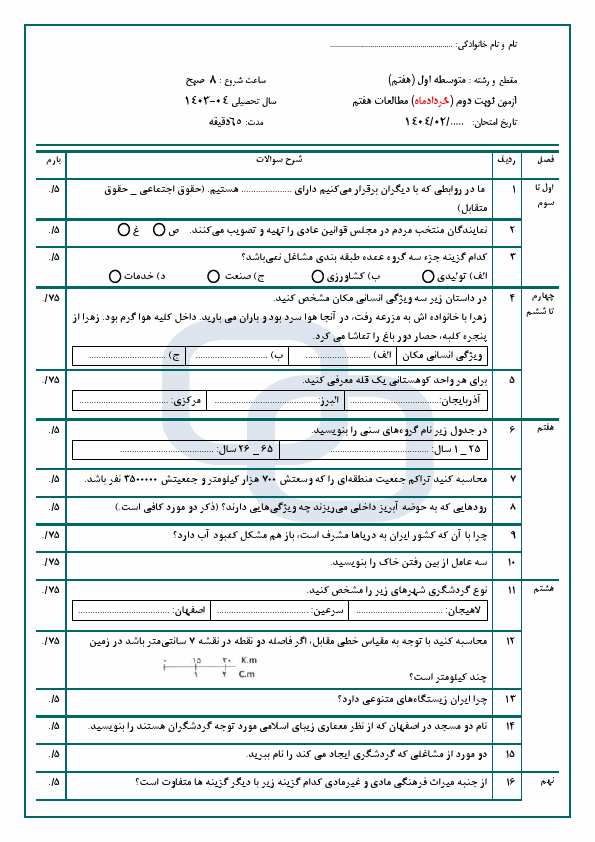 نام و نام خانوادگی: ........................................................
مقطع و رشته : متوسطه اول (هفتم) ساعت شروع : ۸ صبح
آزمون نوبت دوم (خردادماه) مطالعات هفتم سال تحصیلی ۰۴-۱۴۰۳
تاریخ امتحان: ...../۱۴۰۴/۰۲ مدت: ۶۵دقیقه
فصل ردیف شرح سوالات بارم
اول تا سوم ۱ ما در روابطی که با دیگران برقرار می‌کنیم دارای ..................... هستیم. (حقوق اجتماعی _ حقوق ۵/.
متقابل)
۲ نمایندگان منتخب مردم در مجلس قوانین عادی را تهیه و تصویب می‌کنند. ص غ ۵/.
۳ کدام گزینه جزء سه گروه عمده طبقه بندی مشاغل نمی‌باشد؟ ۵/.
الف) تولیدی ب) کشاورزی ج) صنعت د) خدمات
چهارم تا ششم ۴ در داستان زیر سه ویژگی انسانی مکان مشخص کنید. ۷۵/.
زهرا با خانواده اش به مزرعه رفت، در آنجا هوا سرد بود و باران می بارید. داخل کلبه هوا گرم بود. زهرا از
پنجره کلبه، حصار دور باغ را تماشا می کرد.
ویژگی انسانی مکان الف) ........................... ب) ............................. ج) ...............................
۵ برای هر واحد کوهستانی یک قله معرفی کنید. ۷۵/.
آذربایجان:..................................... البرز:......................................... مرکزی: ....................................
هفتم ۶ در جدول زیر نام گروه‌های سنی را بنویسید. ۵/.
۲۵ _ ۱ سال: ....................................................... ۶۵ _ ۲۶ سال: ......................................
۷ محاسبه کنید تراکم جمعیت منطقه‌ای را که وسعتش ۷۰۰ هزار کیلومتر و جمعیتش ۳۵۰۰۰۰۰ نفر باشد. ۵/.
۸ رودهایی که به حوضه آبریز داخلی می‌ریزند چه ویژگی‌هایی دارند؟ (ذکر دو مورد کافی است.) ۵/.
۹ چرا با آن که کشور ایران به دریاها مشرف است، باز هم مشکل کمبود آب دارد؟ ۷۵/.
۱۰ سه عامل از بین رفتن خاک را بنویسید. ۷۵/.
هشتم ۱۱ نوع گردشگری شهرهای زیر را مشخص کنید. ۷۵/.
لاهیجان: ................................... سرعین: ................................................. اصفهان: .....................................
۱۲ محاسبه کنید با توجه به مقیاس خطی مقابل، اگر فاصله دو نقطه در نقشه ۷ سانتی‌متر باشد در زمین ۷۵/.
۰ ۱۵ ۳۰ K.m
۱ ۲ C.m
چند کیلومتر است؟
۱۳ چرا ایران زیستگاه‌های متنوعی دارد؟ ۵/.
۱۴ نام دو مسجد در اصفهان که از نظر معماری زیبای اسلامی مورد توجه گردشگران هستند را بنویسید. ۵/.
۱۵ دو مورد از مشاغلی که گردشگری ایجاد می کند را نام ببرید. ۵/.
نهم ۱۶ از جنبه میراث فرهنگی مادی و غیرمادی کدام گزینه زیر با دیگر گزینه ها متفاوت است؟ ۵/.